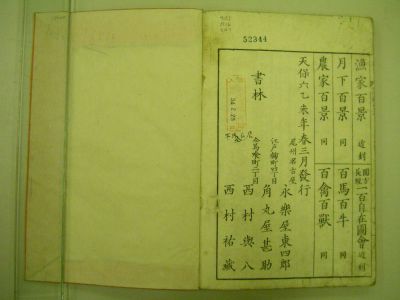 52344
漁家百景 近刻
月下百景 同
農家百景 同
一百自在圖會 近刻
百馬百牛 同
百禽百獸 同
天保六乙未年春三月發行
書林
尾州名古屋
永樂屋東四郎
江戸麹町四丁目
角丸屋甚助
仝馬喰町二丁目
西村與八
西村祐藏